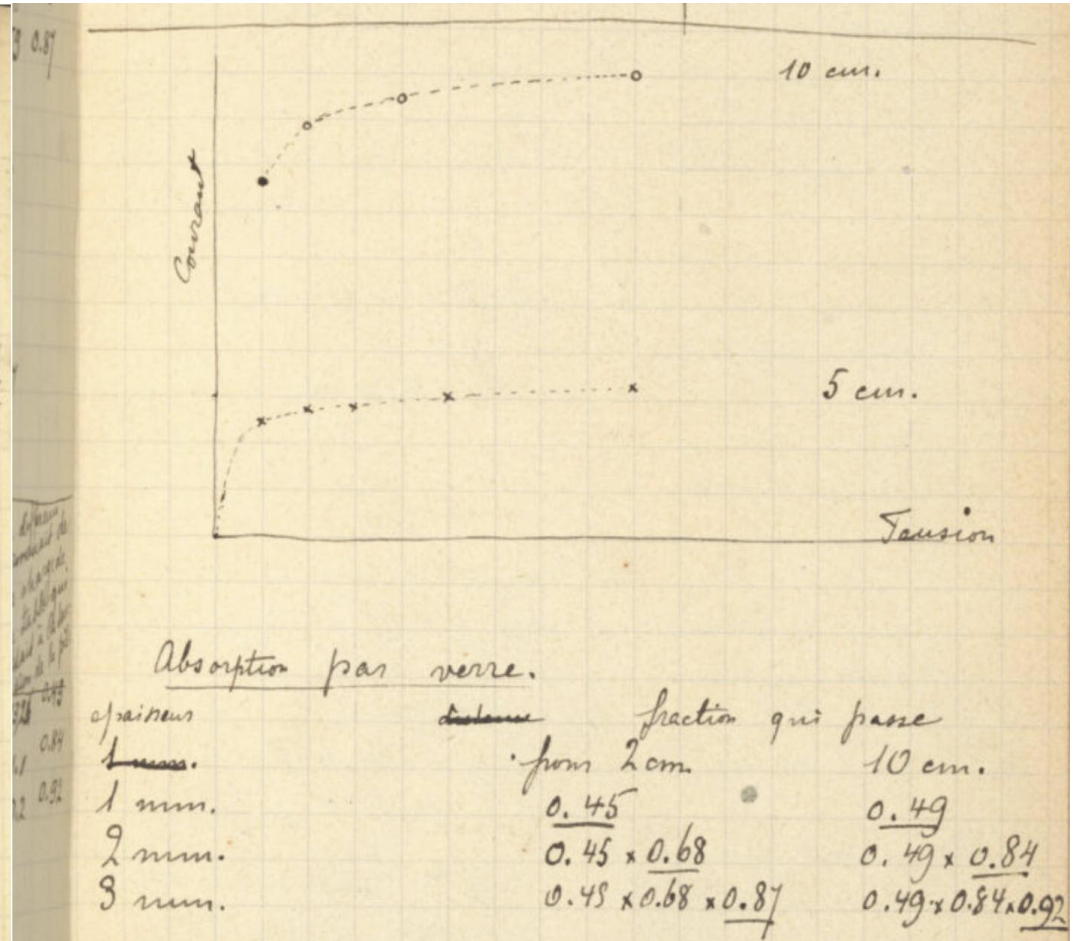 0.87
10 cm.
Courant
5 cm.
Tension
Absorption par verre.
epaisseur distance fraction qui passe
1 mm. pour 2 cm. 10 cm.
1 mm. 0.45 0.49
2 mm. 0.45 x 0.68 0.49 x 0.84
3 mm. 0.45 x 0.68 x 0.87 0.49 x 0.84 x 0.92
0.49
0.84
0.92